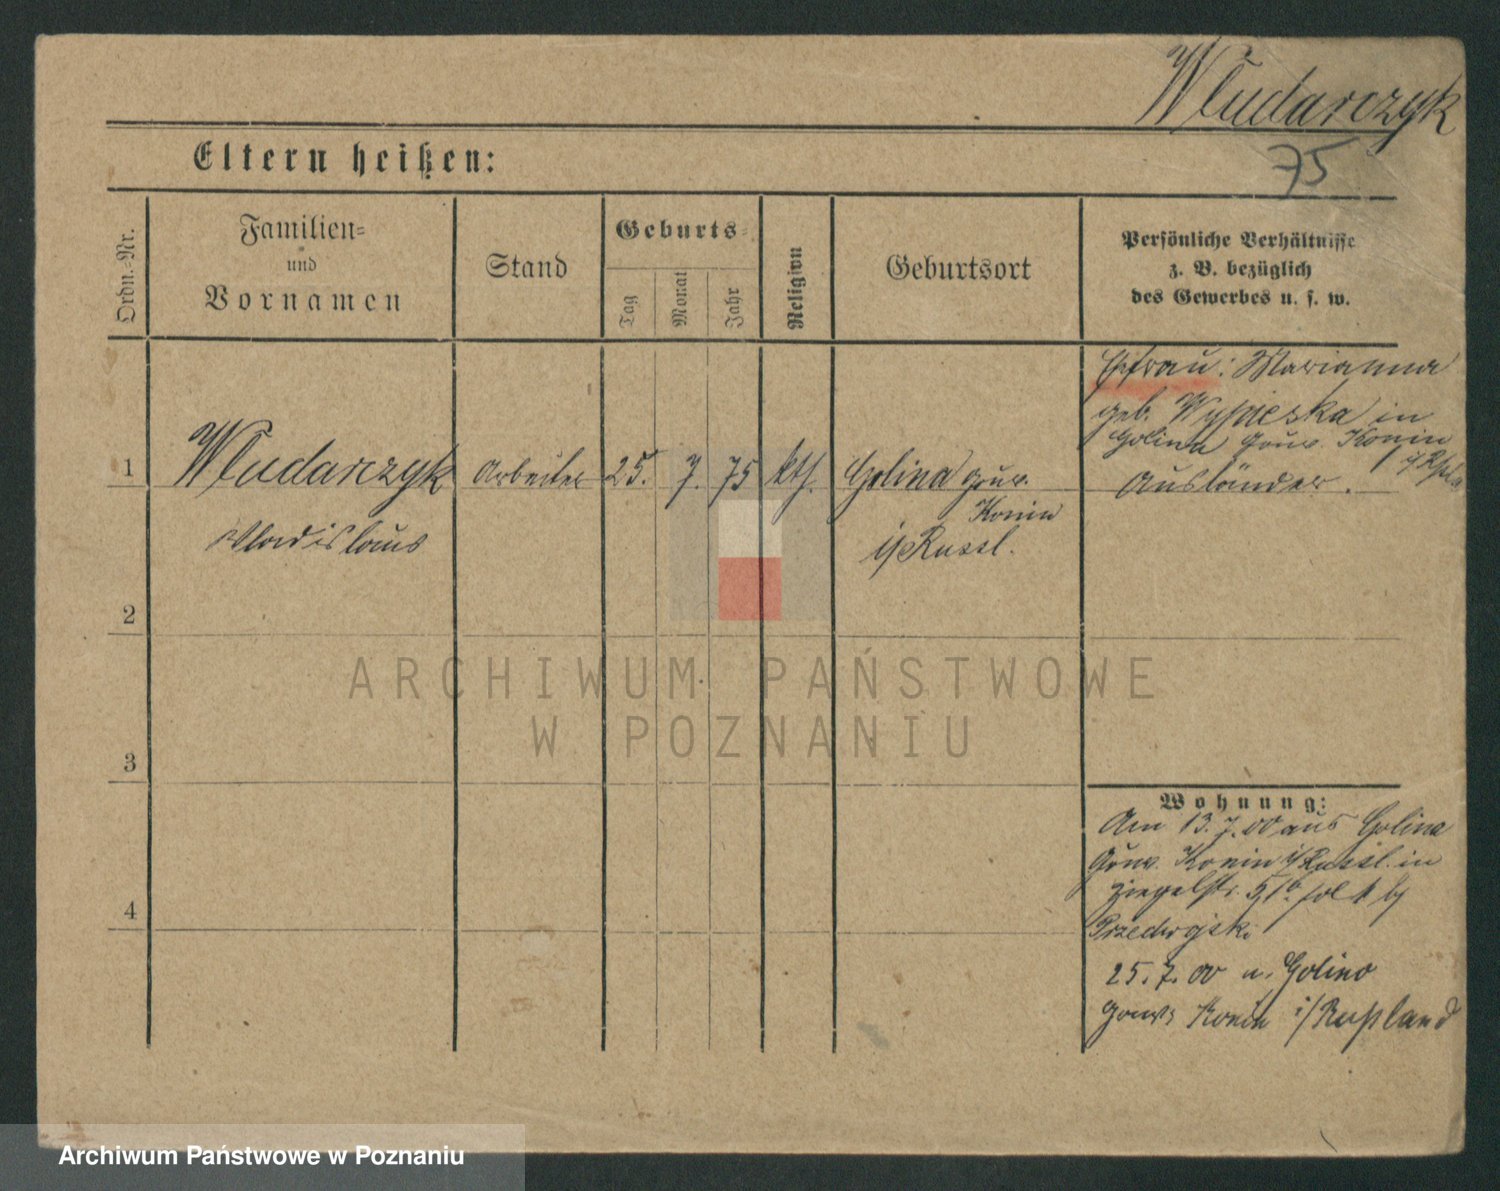 Wludarczyk
75
Eltern heißen:
Ordn.-Nr.
Familien-
und
Vornamen
Stand
Geburts-
Tag
Monat
Jahr
Religion
Geburtsort
Persönliche Verhältnisse
z. B. bezüglich
des Gewerbes u. s. w.
1
Wludarczyk
Arbeiter
25.
7.
75
kth.
Golina Gouv.
Konin
i/Russl.
Wladislaus
Ehefrau: Marianna
geb. Wypieska in
Golina Gouv. Konin
i/Rßld
Ausländer.
2
3
4
ARCHIWUM PAŃSTWOWE
W POZNANIU
Wohnung:
Am 13.7.00 aus Golina
Gouv. Konin i/Russl. in
Ziegelstr. 51b
25.7.00 n. Golino
Gouv. Konin i/Rußland
Archiwum Państwowe w Poznaniu